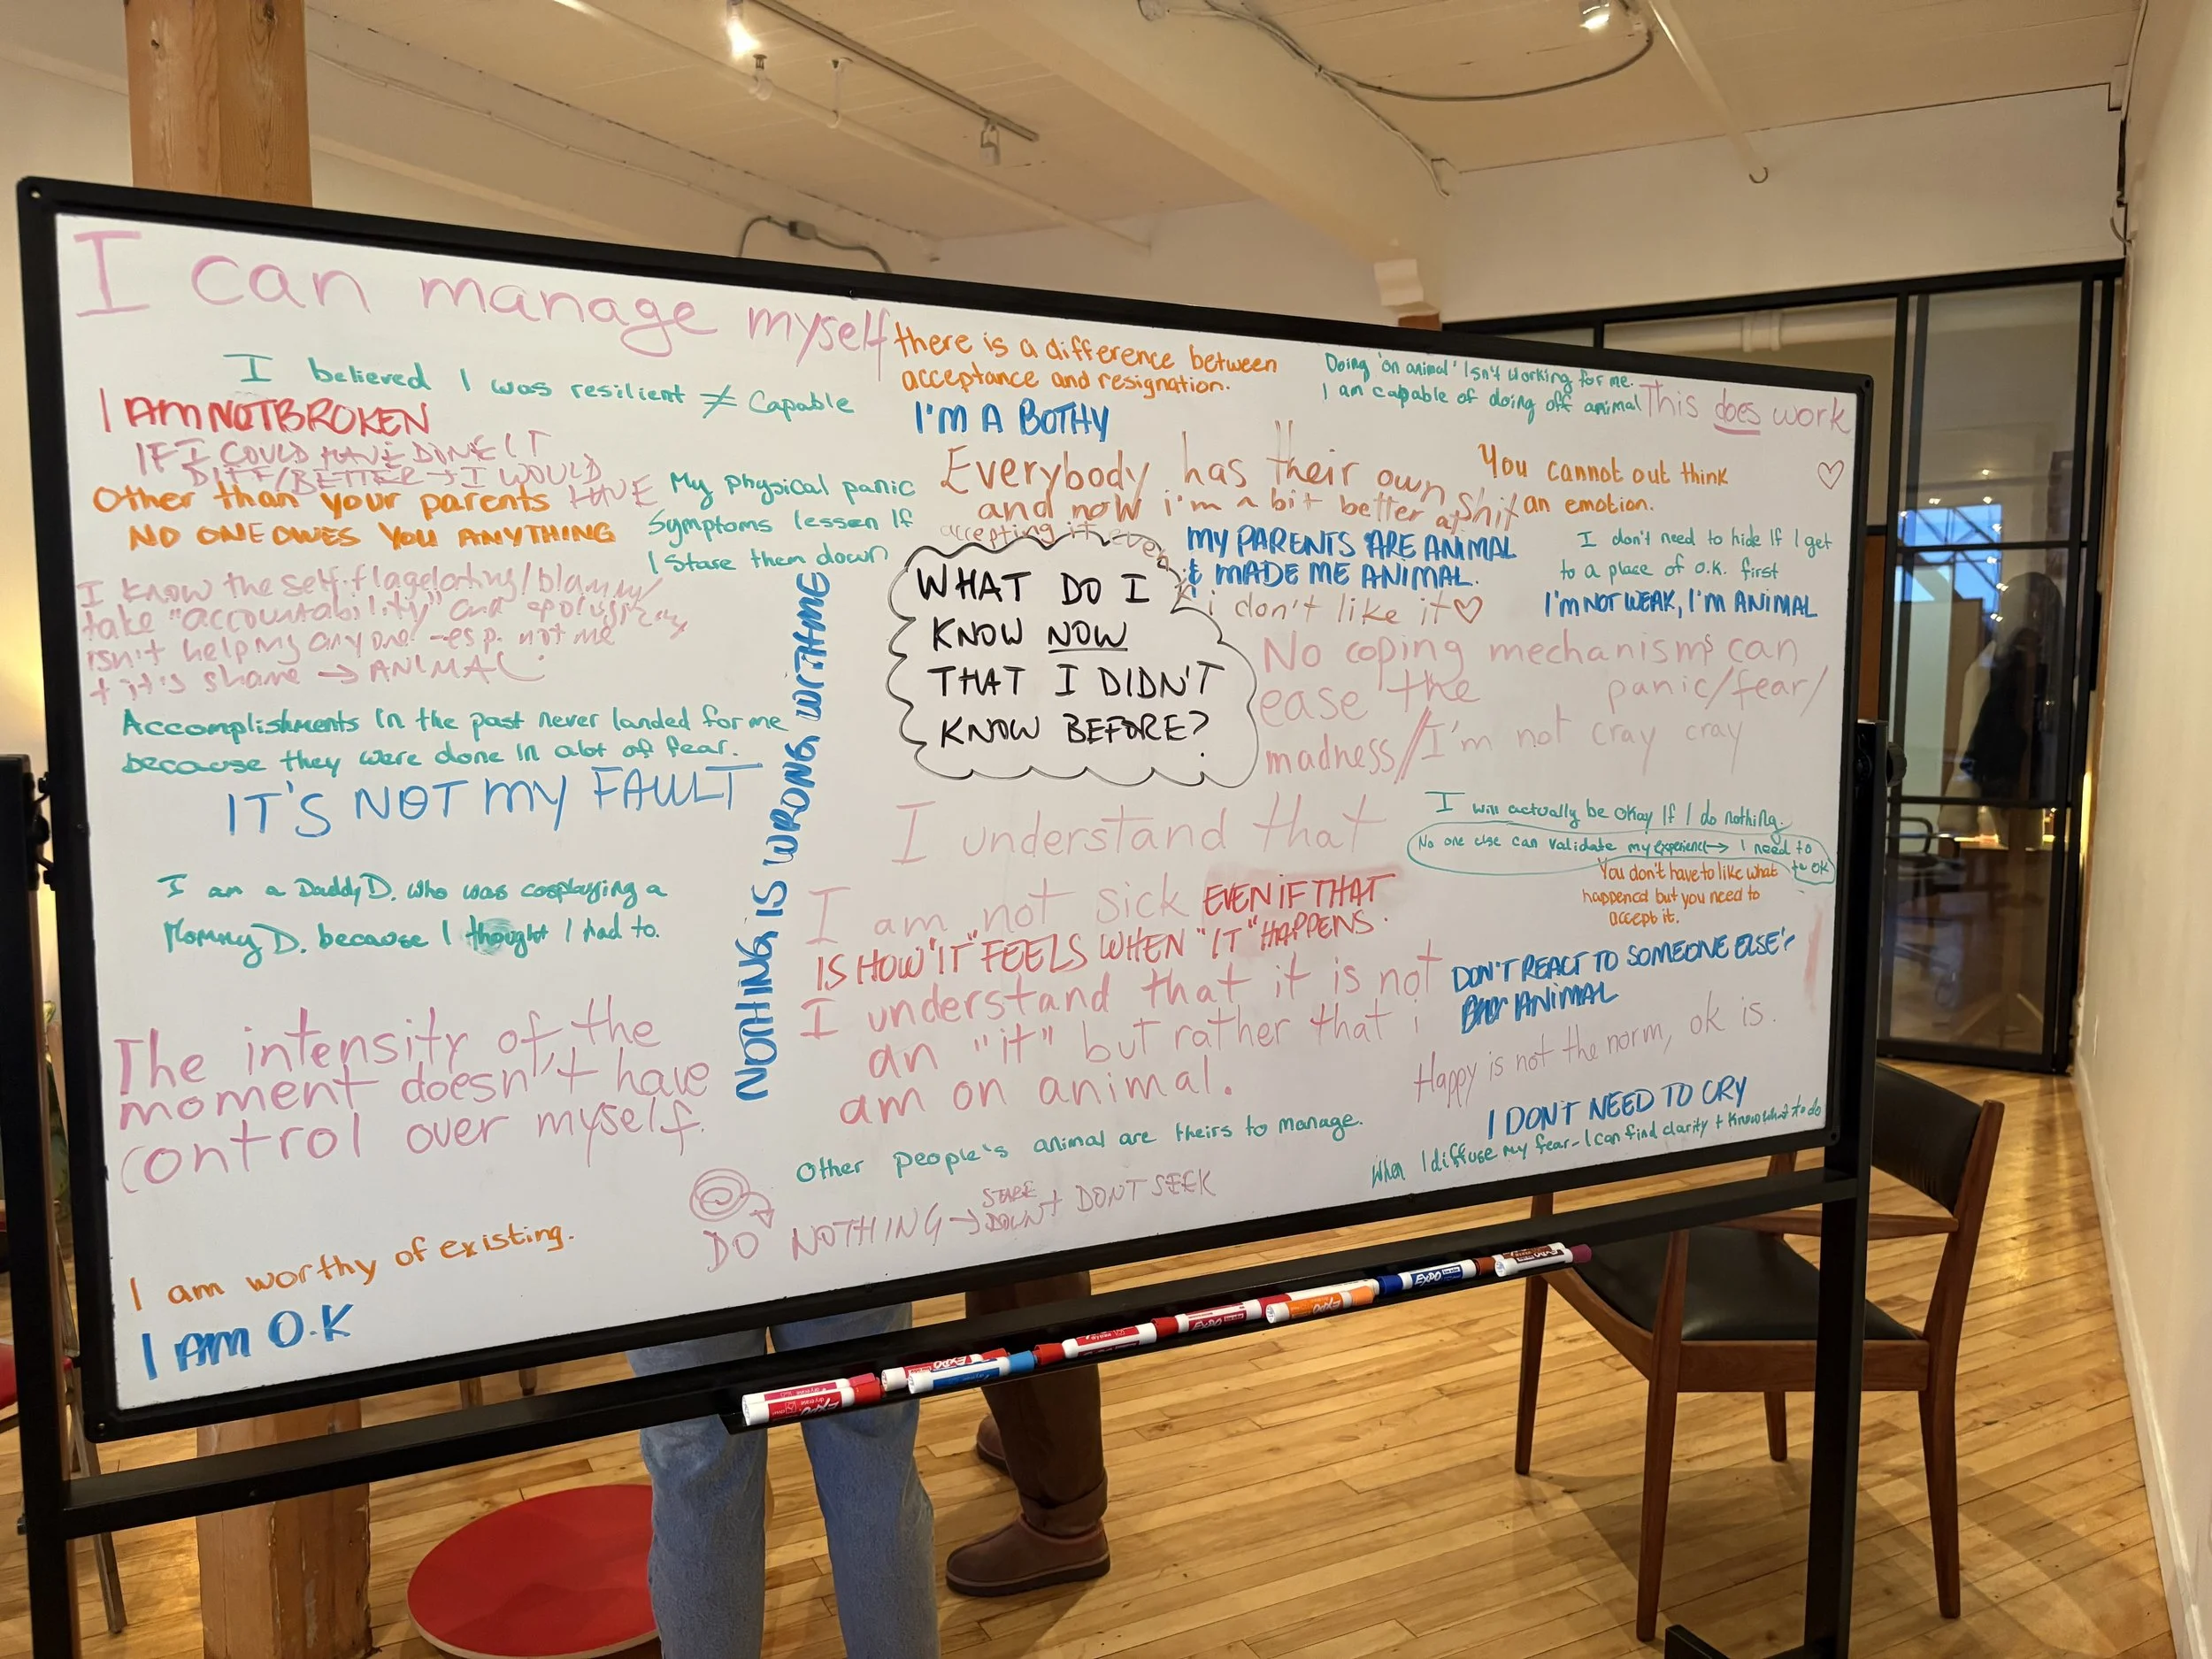 I can manage myself
I believed I was resilient ≠ Capable
I AM NOT BROKEN
IF I COULD HAVE DONE IT
DIFF/BETTER → I WOULD
HAVE
Other than your parents
NO ONE OWES YOU ANYTHING
My physical panic
Symptoms lessen If
I Stare them down
I know the self-flagelating/blaming/
take "accountability" and apologizing
isn't helping anyone - esp. not me
+ it's shame → ANIMAL.
Accomplishments In the past never landed for me
because they were done in alot of fear.
IT'S NOT MY FAULT
I am a Daddy D. who was cosplaying a
Mommy D. because I thought I had to.
The intensity of the
moment doesn't have
control over myself.
I am worthy of existing.
I AM O.K
NOTHING IS WRONG WITH ME
there is a difference between
acceptance and resignation.
I'M A BOTHY
Everybody has their own shit
and now i'm a bit better at
accepting it even
WHAT DO I
KNOW NOW
THAT I DIDN'T
KNOW BEFORE?
Doing 'on animal' Isn't working for me.
I am capable of doing off animal
This does work
You cannot out think
an emotion.
MY PARENTS ARE ANIMAL
& MADE ME ANIMAL.
i don't like it
I don't need to hide If I get
to a place of o.k. first
I'M NOT WEAK, I'M ANIMAL
No coping mechanisms can
ease the panic/fear/
madness/I'm not cray cray
I understand that
I am not sick EVEN IF THAT
IS HOW "IT" FEELS WHEN "IT" HAPPENS.
I understand that it is not
an "it" but rather that i
am on animal.
I will actually be okay If I do nothing.
No one else can validate my experience → I need to
be ok
You don't have to like what
happened but you need to
accept it.
DON'T REACT TO SOMEONE ELSE'S
ANIMAL
Happy is not the norm, ok is.
I DON'T NEED TO CRY
When I diffuse my fear - I can find clarity + Know what to do
Other people's animal are theirs to manage.
DO NOTHING → STARE DOWN + DON'T SEEK
EXPO
EXPO
EXPO
EXPO